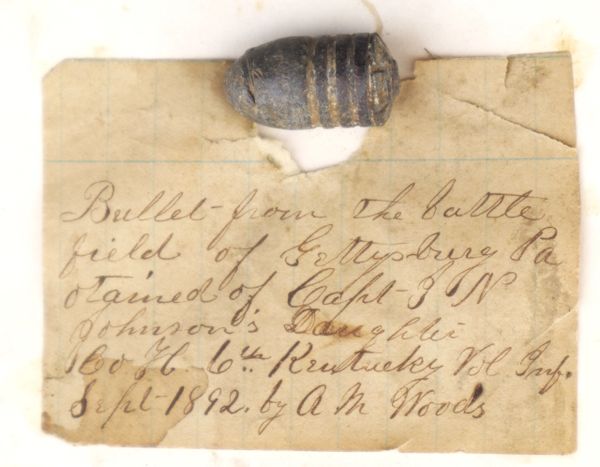 Bullet from the battle
field of Gettysburg Pa
otained of Capt J N
Johnson's Daughter
Co H. 6th Kentucky Vol. Inf.
Sept 1892. by A M Woods